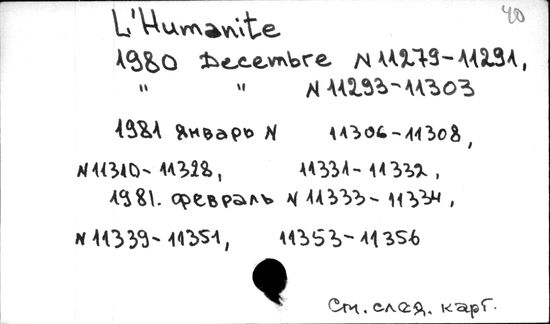 40
L'Humanite
1980 Decembre N 11279-11291,
" " N 11293-11303
1981 январь N 11306-11308,
N 11310-11328, 11331-11332,
1981. февраль N 11333-11334,
N 11339-11351, 11353-11356
См. след. карт.